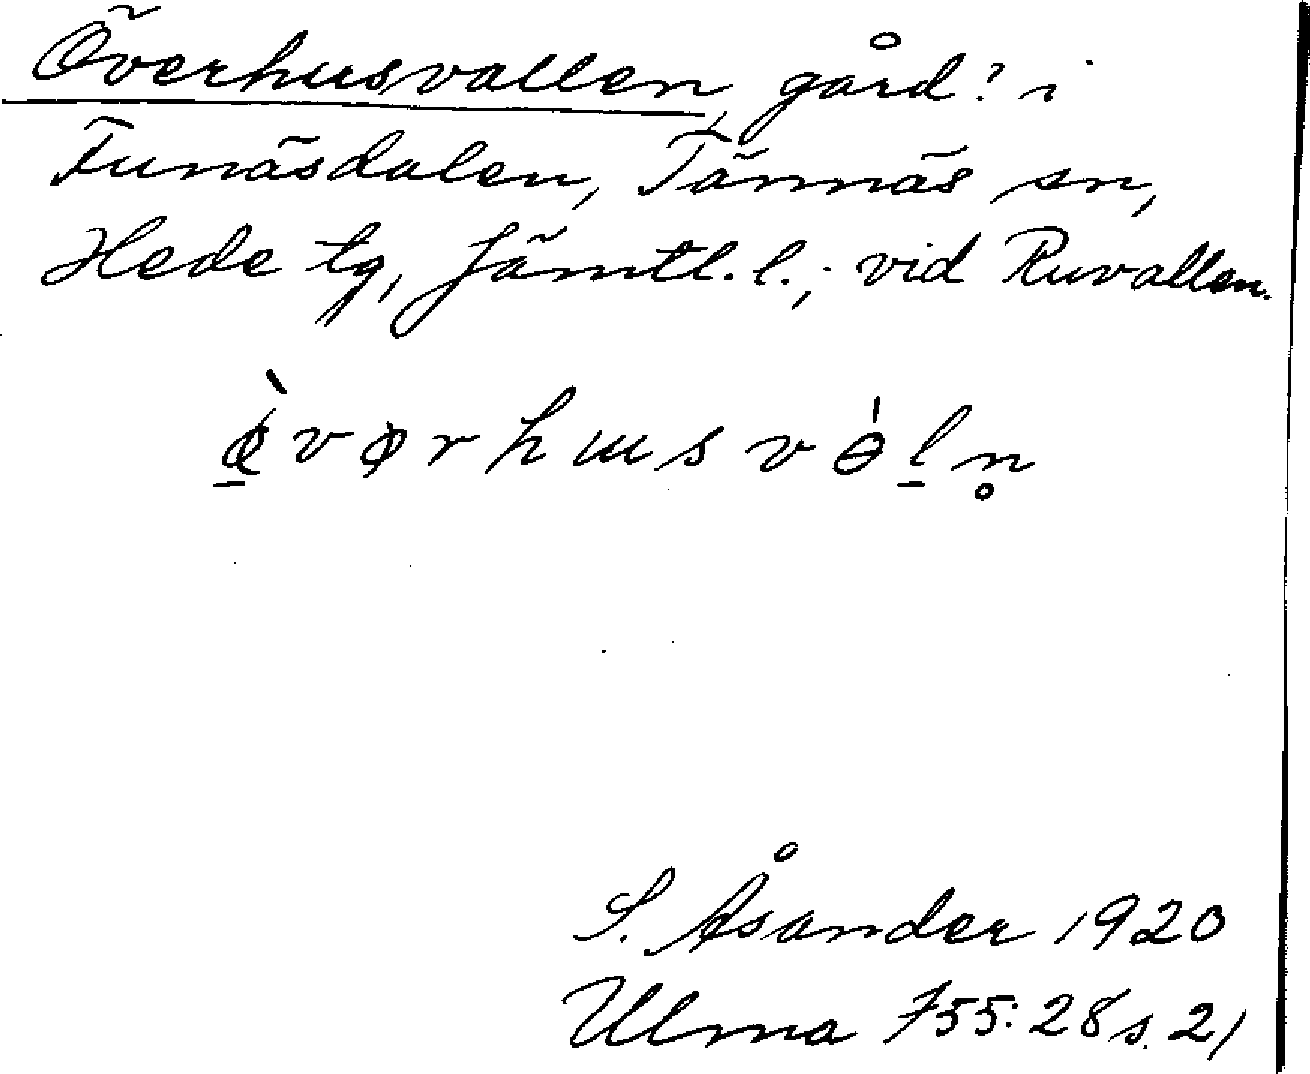 Överhusvallen, gård? i
Funäsdalen, Tännäs sn,
Hede tg, Jämtl. l.; vid Ruvallen.
S. Åsander 1920
Ulma 755:28 s. 21